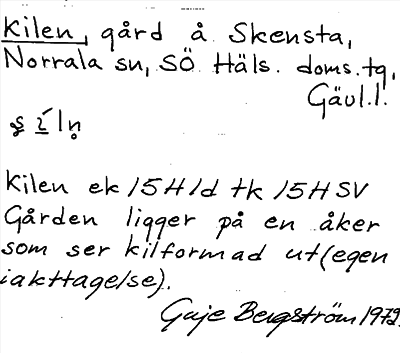 Kilen, gård å Skensta,
Norrala sn, SÖ Häls. doms.tg,
Gävl.l.
Kilen ek 15H1d tk 15H SV
Gården ligger på en åker
som ser kilformad ut (egen
iakttagelse).
Guje Bergström 1972.